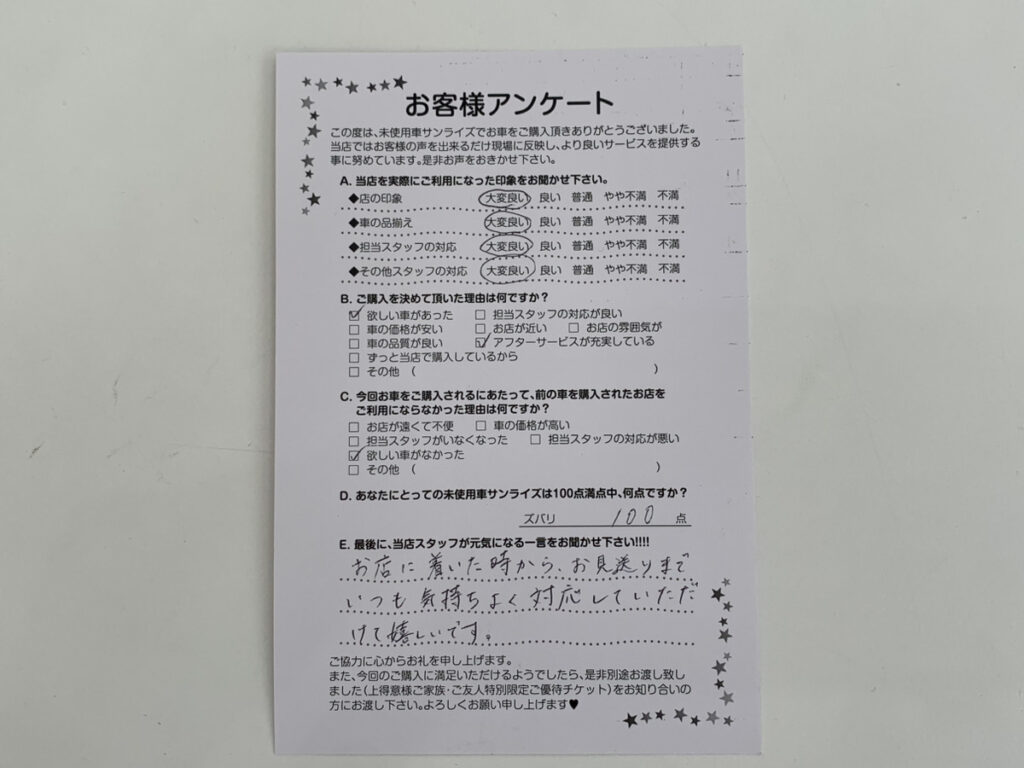 お客様アンケート
この度は、未使用車サンライズでお車をご購入頂きありがとうございました。
当店ではお客様の声を出来るだけ現場に反映し、より良いサービスを提供する
事に努めています。是非お声をおきかせ下さい。
A. 当店を実際にご利用になった印象をお聞かせ下さい。
◆店の印象 大変良い 良い 普通 やや不満 不満
◆車の品揃え 大変良い 良い 普通 やや不満 不満
◆担当スタッフの対応 大変良い 良い 普通 やや不満 不満
◆その他スタッフの対応 大変良い 良い 普通 やや不満 不満
B. ご購入を決めて頂いた理由は何ですか？
☑ 欲しい車があった □ 担当スタッフの対応が良い
□ 車の価格が安い □ お店が近い □ お店の雰囲気が
□ 車の品質が良い ☑ アフターサービスが充実している
□ ずっと当店で購入しているから
□ その他 ( )
C. 今回お車をご購入されるにあたって、前の車を購入されたお店を
ご利用にならなかった理由は何ですか？
□ お店が遠くて不便 □ 車の価格が高い
□ 担当スタッフがいなくなった □ 担当スタッフの対応が悪い
☑ 欲しい車がなかった
□ その他 ( )
D. あなたにとっての未使用車サンライズは100点満点中、何点ですか？
ズバリ 100 点
E. 最後に、当店スタッフが元気になる一言をお聞かせ下さい!!!!
お店に着いた時から、お見送りまで
いつも気持ちよく対応していただ
けて嬉しいです。
ご協力に心からお礼を申し上げます。
また、今回のご購入に満足いただけるようでしたら、是非別途お渡し致し
ました（上得意様ご家族・ご友人特別限定ご優待チケット）をお知り合いの
方にお渡し下さい。よろしくお願い申し上げます♥